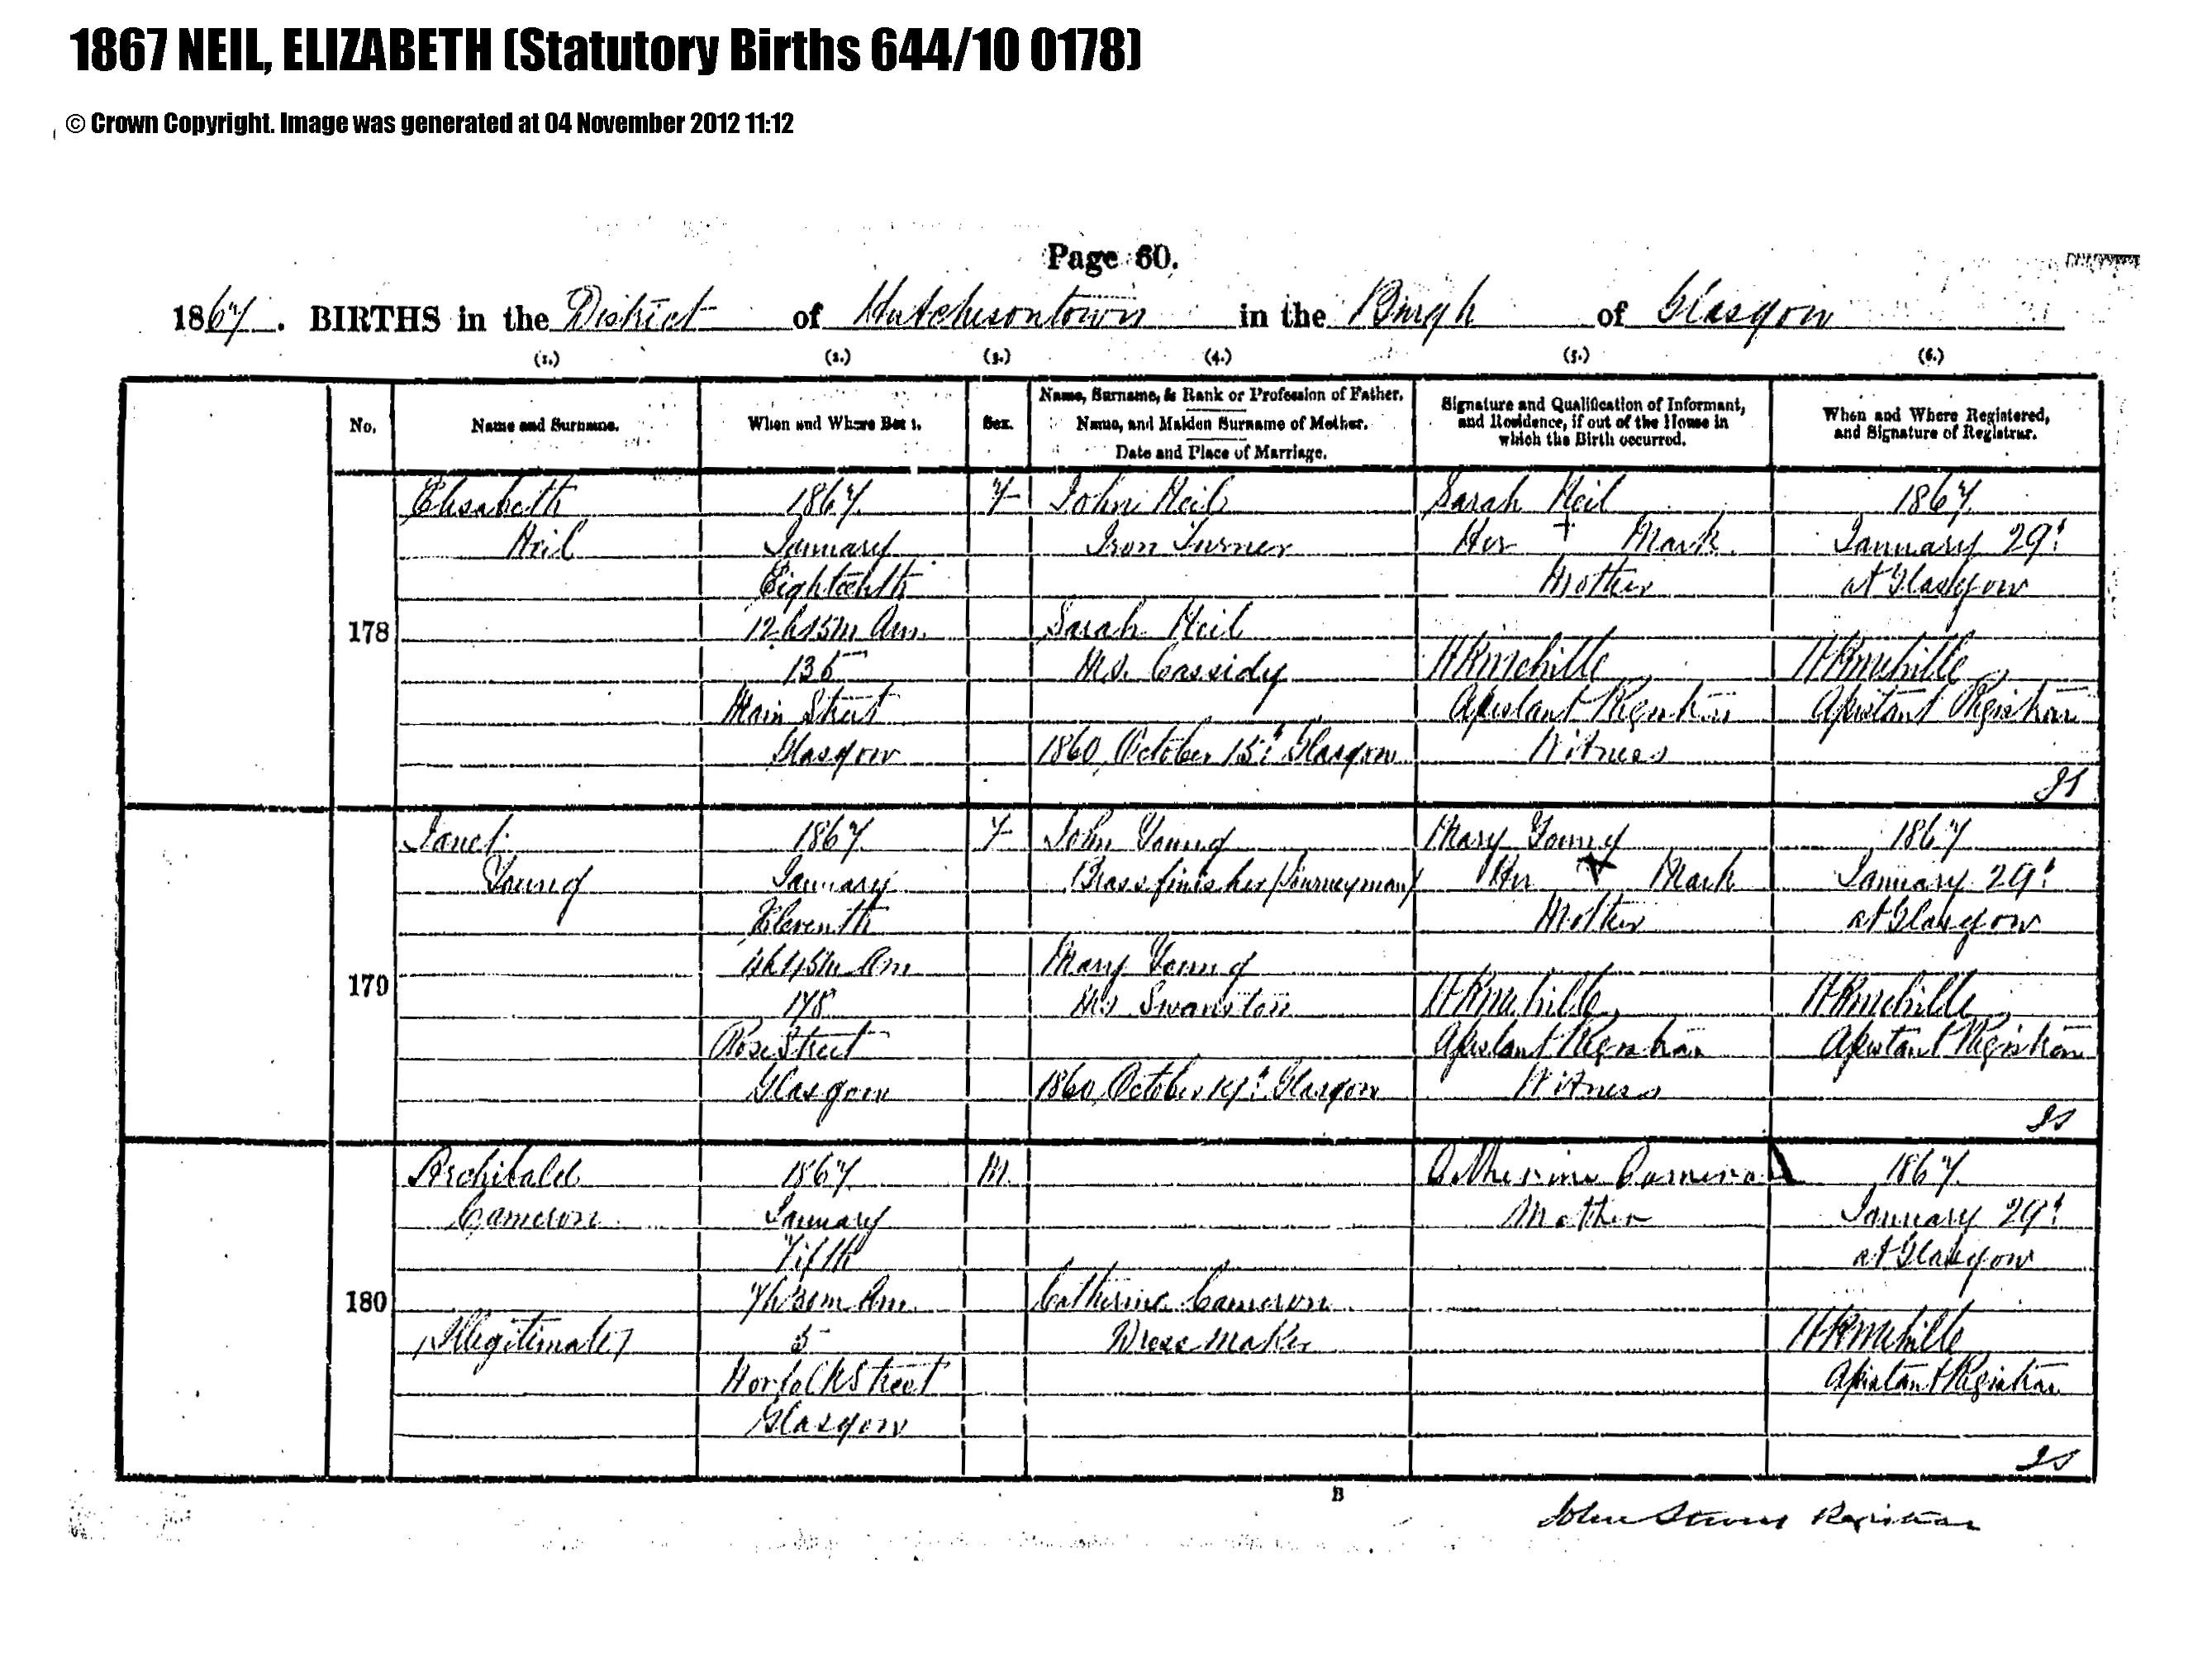 1867 NEIL, ELIZABETH (Statutory Births 644/10 0178)
© Crown Copyright. Image was generated at 04 November 2012 11:12
Page 60.
1867. BIRTHS in the District of Hutchesontown in the Burgh of Glasgow
(1.) (2.) (3.) (4.) (5.) (6.)
No.
Name and Surname.
When and Where Born.
Sex.
Name, Surname, & Rank or Profession of Father.
Name, and Maiden Surname of Mother.
Date and Place of Marriage.
Signature and Qualification of Informant,
and Residence, if out of the House in
which the Birth occurred.
When and Where Registered,
and Signature of Registrar.
178
Elisabeth
Neil
1867
January
Eighteenth
12h 15m Am.
135
Main Street
Glasgow
F
John Neil
Iron Turner
Sarah Neil
M.S. Cassidy
1860, October 15t Glasgow
Sarah Neil
Her + Mark
Mother
Assistant Registrar
Witness
1867
January 29t
at Glasgow
Assistant Registrar
JS
179
Janet
Young
1867
January
Eleventh
Am
178
Rose Street
Glasgow
F
John Young
Brassfinisher (Journeyman)
Mary Young
MS Swanston
1860, October Glasgow
Mary Young
Her x Mark
Mother
Assistant Registrar
Witness
1867
January 29t
at Glasgow
Assistant Registrar
JS
180
Archibald
Cameron
(Illegitimate)
1867
January
Fifth
7h 30m Am.
5
Norfolk Street
Glasgow
M.
Catherine Cameron
Dress Maker
Catherine Cameron
Mother
1867
January 29t
at Glasgow
Assistant Registrar
JS
B
John Registrar